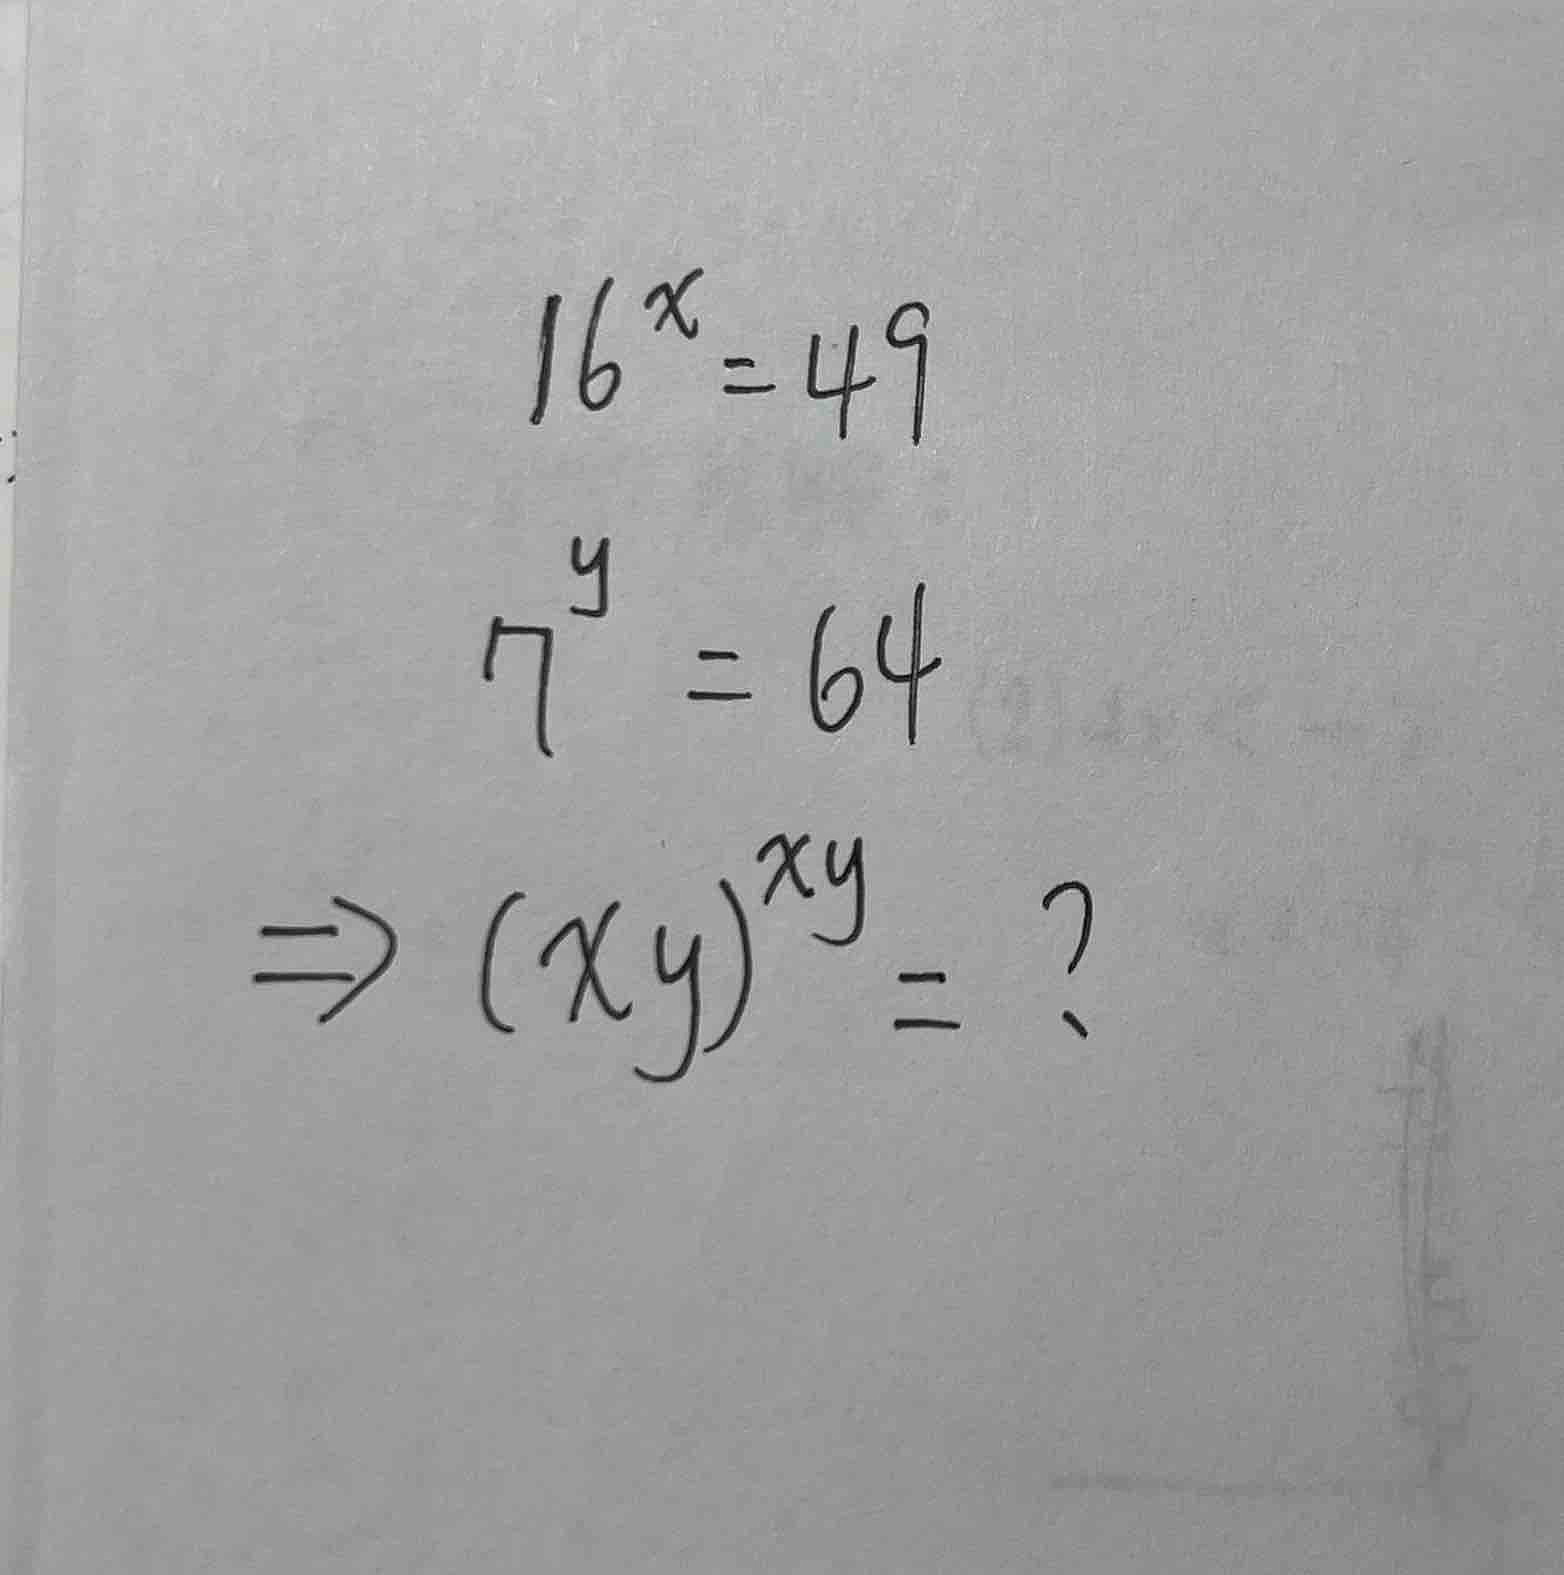 16^x = 49
7^y = 64
⇒ (xy)^xy = ?